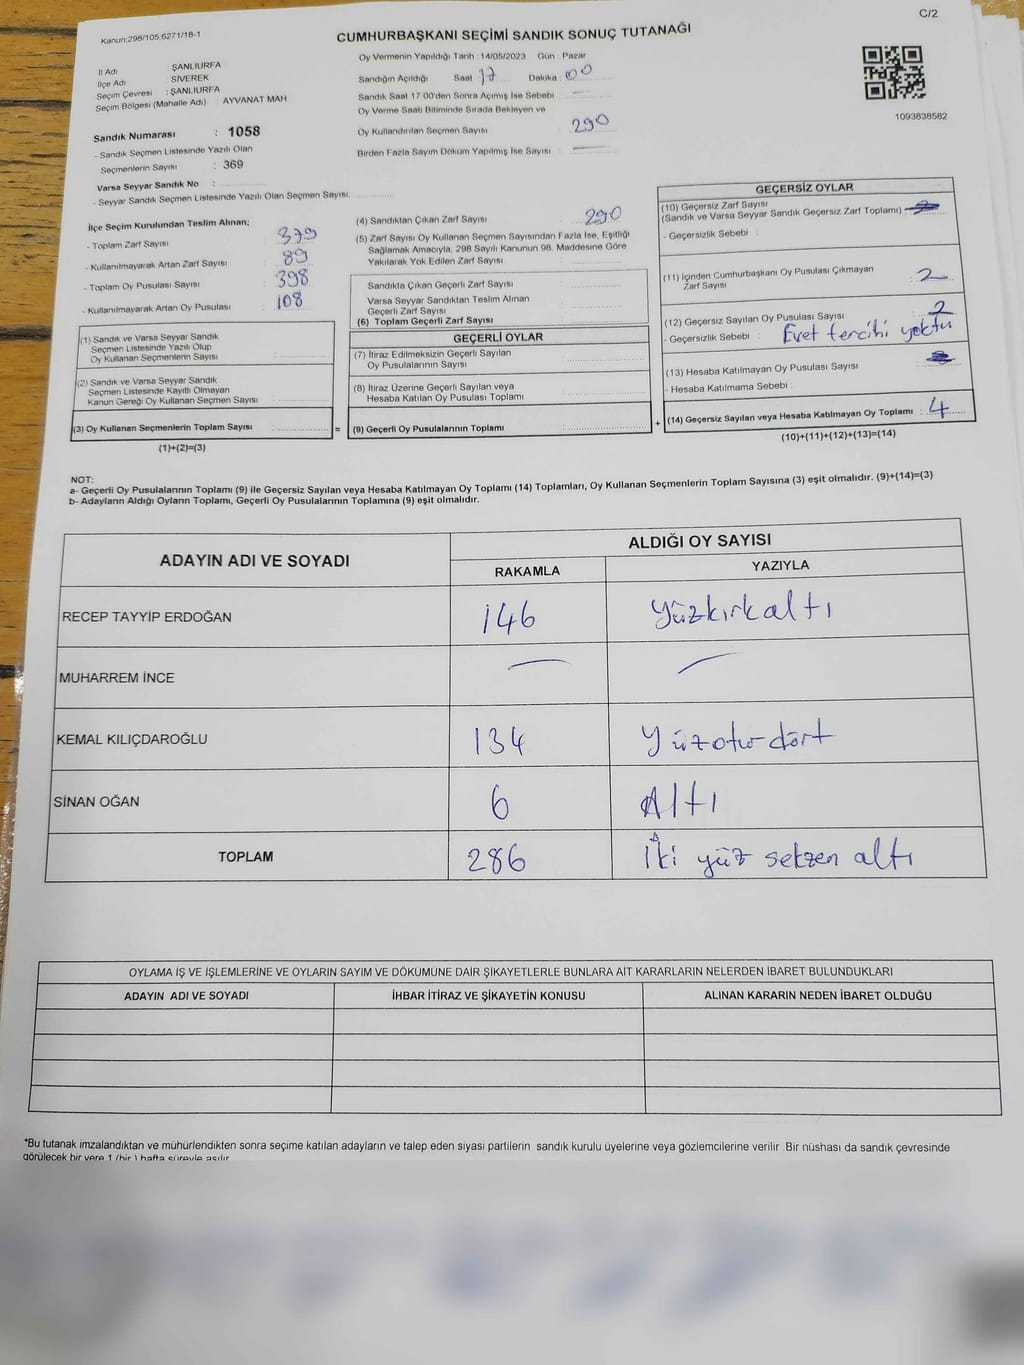 C/2
Kanun:298/105:6271/18-1
CUMHURBAŞKANI SEÇİMİ SANDIK SONUÇ TUTANAĞI
İl Adı : ŞANLIURFA
İlçe Adı : SİVEREK
Seçim Çevresi : ŞANLIURFA
Seçim Bölgesi (Mahalle Adı) : AYVANAT MAH
Sandık Numarası : 1058
- Sandık Seçmen Listesinde Yazılı Olan
Seçmenlerin Sayısı : 369
Varsa Seyyar Sandık No :
- Seyyar Sandık Seçmen Listesinde Yazılı Olan Seçmen Sayısı:
Oy Vermenin Yapıldığı Tarih : 14/05/2023 Gün : Pazar
Sandığın Açıldığı Saat 17 Dakika : 00
Sandık Saat 17:00'den Sonra Açımış İse Sebebi :
Oy Verme Saati Bitiminde Sırada Bekleyen ve
Oy Kullandırılan Seçmen Sayısı 290
Birden Fazla Sayım Döküm Yapılmış İse Sayısı
1093838582
İlçe Seçim Kurulundan Teslim Alınan;
- Toplam Zarf Sayısı : 379
- Kullanılmayarak Artan Zarf Sayısı : 89
- Toplam Oy Pusulası Sayısı : 398
- Kullanılmayarak Artan Oy Pusulası : 108
(1) Sandık ve Varsa Seyyar Sandık
Seçmen Listesinde Yazılı Olup
Oy Kullanan Seçmenlerin Sayısı
(2) Sandık ve Varsa Seyyar Sandık
Seçmen Listesinde Kayıtlı Olmayan
Kanun Gereği Oy Kullanan Seçmen Sayısı
(3) Oy Kullanan Seçmenlerin Toplam Sayısı : =
(1)+(2)=(3)
(4) Sandıktan Çıkan Zarf Sayısı 290
(5) Zarf Sayısı Oy Kullanan Seçmen Sayısından Fazla İse, Eşitliği
Sağlamak Amacıyla, 298 Sayılı Kanunun 98. Maddesine Göre
Yakılarak Yok Edilen Zarf Sayısı
Sandıkta Çıkan Geçerli Zarf Sayısı
Varsa Seyyar Sandıktan Teslim Alınan
Geçerli Zarf Sayısı
(6) Toplam Geçerli Zarf Sayısı
GEÇERLİ OYLAR
(7) İtiraz Edilmeksizin Geçerli Sayılan
Oy Pusulalarının Sayısı
(8) İtiraz Üzerine Geçerli Sayılan veya
Hesaba Katılan Oy Pusulası Toplamı
(9) Geçerli Oy Pusulalarının Toplamı : +
GEÇERSİZ OYLAR
(10) Geçersiz Zarf Sayısı
(Sandık ve Varsa Seyyar Sandık Geçersiz Zarf Toplamı)
- Geçersizlik Sebebi :
(11) İçinden Cumhurbaşkanı Oy Pusulası Çıkmayan
Zarf Sayısı 2
(12) Geçersiz Sayılan Oy Pusulası Sayısı 2
- Geçersizlik Sebebi : Evet tercihi yoktu
(13) Hesaba Katılmayan Oy Pusulası Sayısı
- Hesaba Katılmama Sebebi :
(14) Geçersiz Sayılan veya Hesaba Katılmayan Oy Toplamı : 4
(10)+(11)+(12)+(13)=(14)
NOT:
a- Geçerli Oy Pusulalarının Toplamı (9) ile Geçersiz Sayılan veya Hesaba Katılmayan Oy Toplamı (14) Toplamları, Oy Kullanan Seçmenlerin Toplam Sayısına (3) eşit olmalıdır. (9)+(14)=(3)
b- Adayların Aldığı Oyların Toplamı, Geçerli Oy Pusulalarının Toplamına (9) eşit olmalıdır.
ADAYIN ADI VE SOYADI ALDIĞI OY SAYISI
RAKAMLA YAZIYLA
RECEP TAYYİP ERDOĞAN 146 Yüzkırkaltı
MUHARREM İNCE
KEMAL KILIÇDAROĞLU 134
SİNAN OĞAN 6 Altı
TOPLAM 286 İki yüz seksen altı
OYLAMA İŞ VE İŞLEMLERİNE VE OYLARIN SAYIM VE DÖKÜMÜNE DAİR ŞİKAYETLERLE BUNLARA AİT KARARLARIN NELERDEN İBARET BULUNDUKLARI
ADAYIN ADI VE SOYADI İHBAR İTİRAZ VE ŞİKAYETİN KONUSU ALINAN KARARIN NEDEN İBARET OLDUĞU
*Bu tutanak imzalandıktan ve mühürlendikten sonra seçime katılan adayların ve talep eden siyasi partilerin sandık kurulu üyelerine veya gözlemcilerine verilir .Bir nüshası da sandık çevresinde
görülecek bir yere 1 (bir ) hafta süreyle asılır.